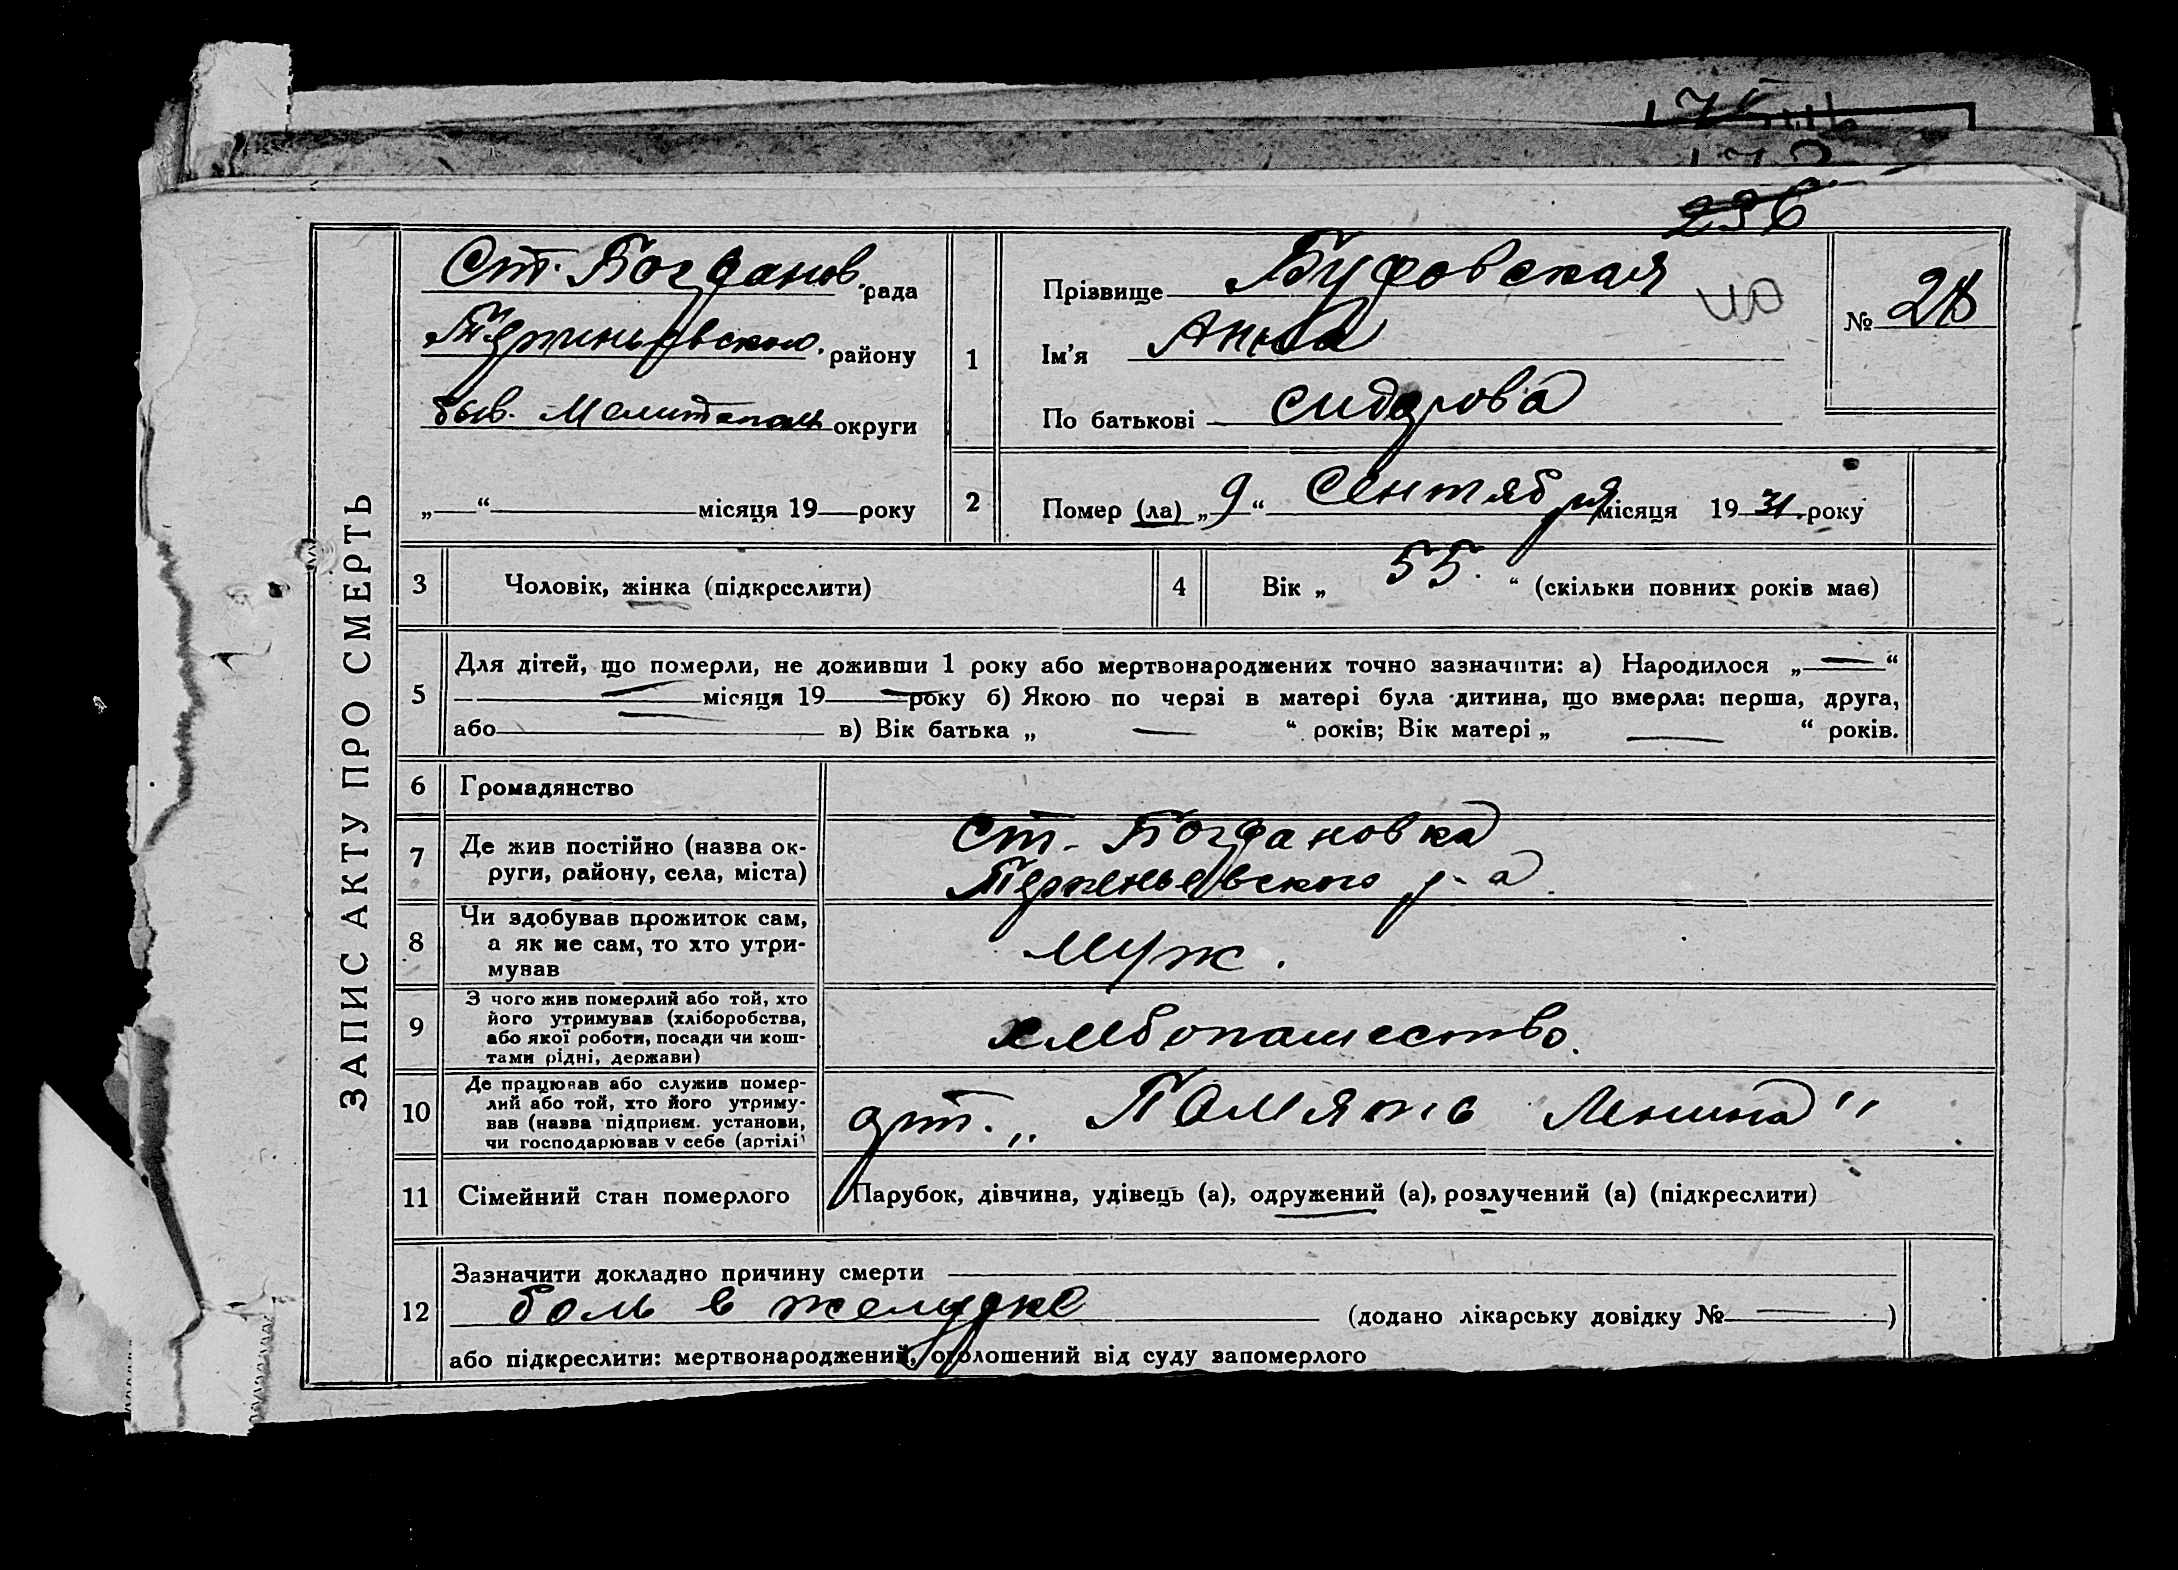 236
ЗАПИС АКТУ ПРО СМЕРТЬ
Ст. Богданов. рада
району
быв. Мелитополь округи
„ “ місяця 19 року
1
Прізвище Будовская
Ім'я Анна
По батькові Сидорова
№ 28
2
Помер (ла) „ 9 “ Сентября місяця 19 31. року
3
Чоловік, жінка (підкреслити)
4
Вік „ 55. “ (скільки повних років має)
5
Для дітей, що померли, не доживши 1 року або мертвонароджених точно зазначити: а) Народилося „ — “
— місяця 19 — року б) Якою по черзі в матері була дитина, що вмерла: перша, друга,
або — в) Вік батька „ — “ років; Вік матері „ — “ років.
6
Громадянство
7
Де жив постійно (назва ок-
руги, району, села, міста)
Ст. Богдановка
р-а.
8
Чи здобував прожиток сам,
а як не сам, то хто утри-
мував
муж.
9
З чого жив померлий або той, хто
його утримував (хліборобства,
або якої роботи, посади чи кош-
тами рідні, держави)
хлебопашество.
10
Де працював або служив помер-
лий або той, хто його утриму-
вав (назва підприєм. установи,
чи господарював у себе (артілі)
арт. „Память Ленина"
11
Сімейний стан померлого
Парубок, дівчина, удівець (а), одружений (а), розлучений (а) (підкреслити)
12
Зазначити докладно причину смерти
боль в желудке (додано лікарську довідку № — )
або підкреслити: мертвонароджений, оголошений від суду запомерлого